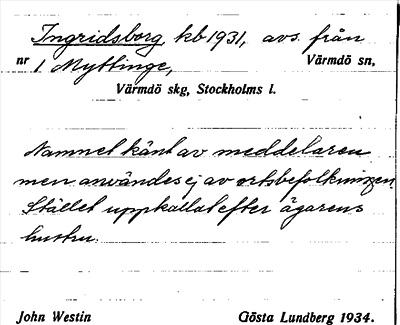 Ingridsborg, kb 1931, avs. från
nr 1 Myttinge, Värmdö sn,
Värmdö skg, Stockholms l.
Namnet känt av meddelaren
men användes ej av ortsbefolkningen.
Stället uppkallat efter ägarens
hustru.
John Westin Gösta Lundberg 1934.